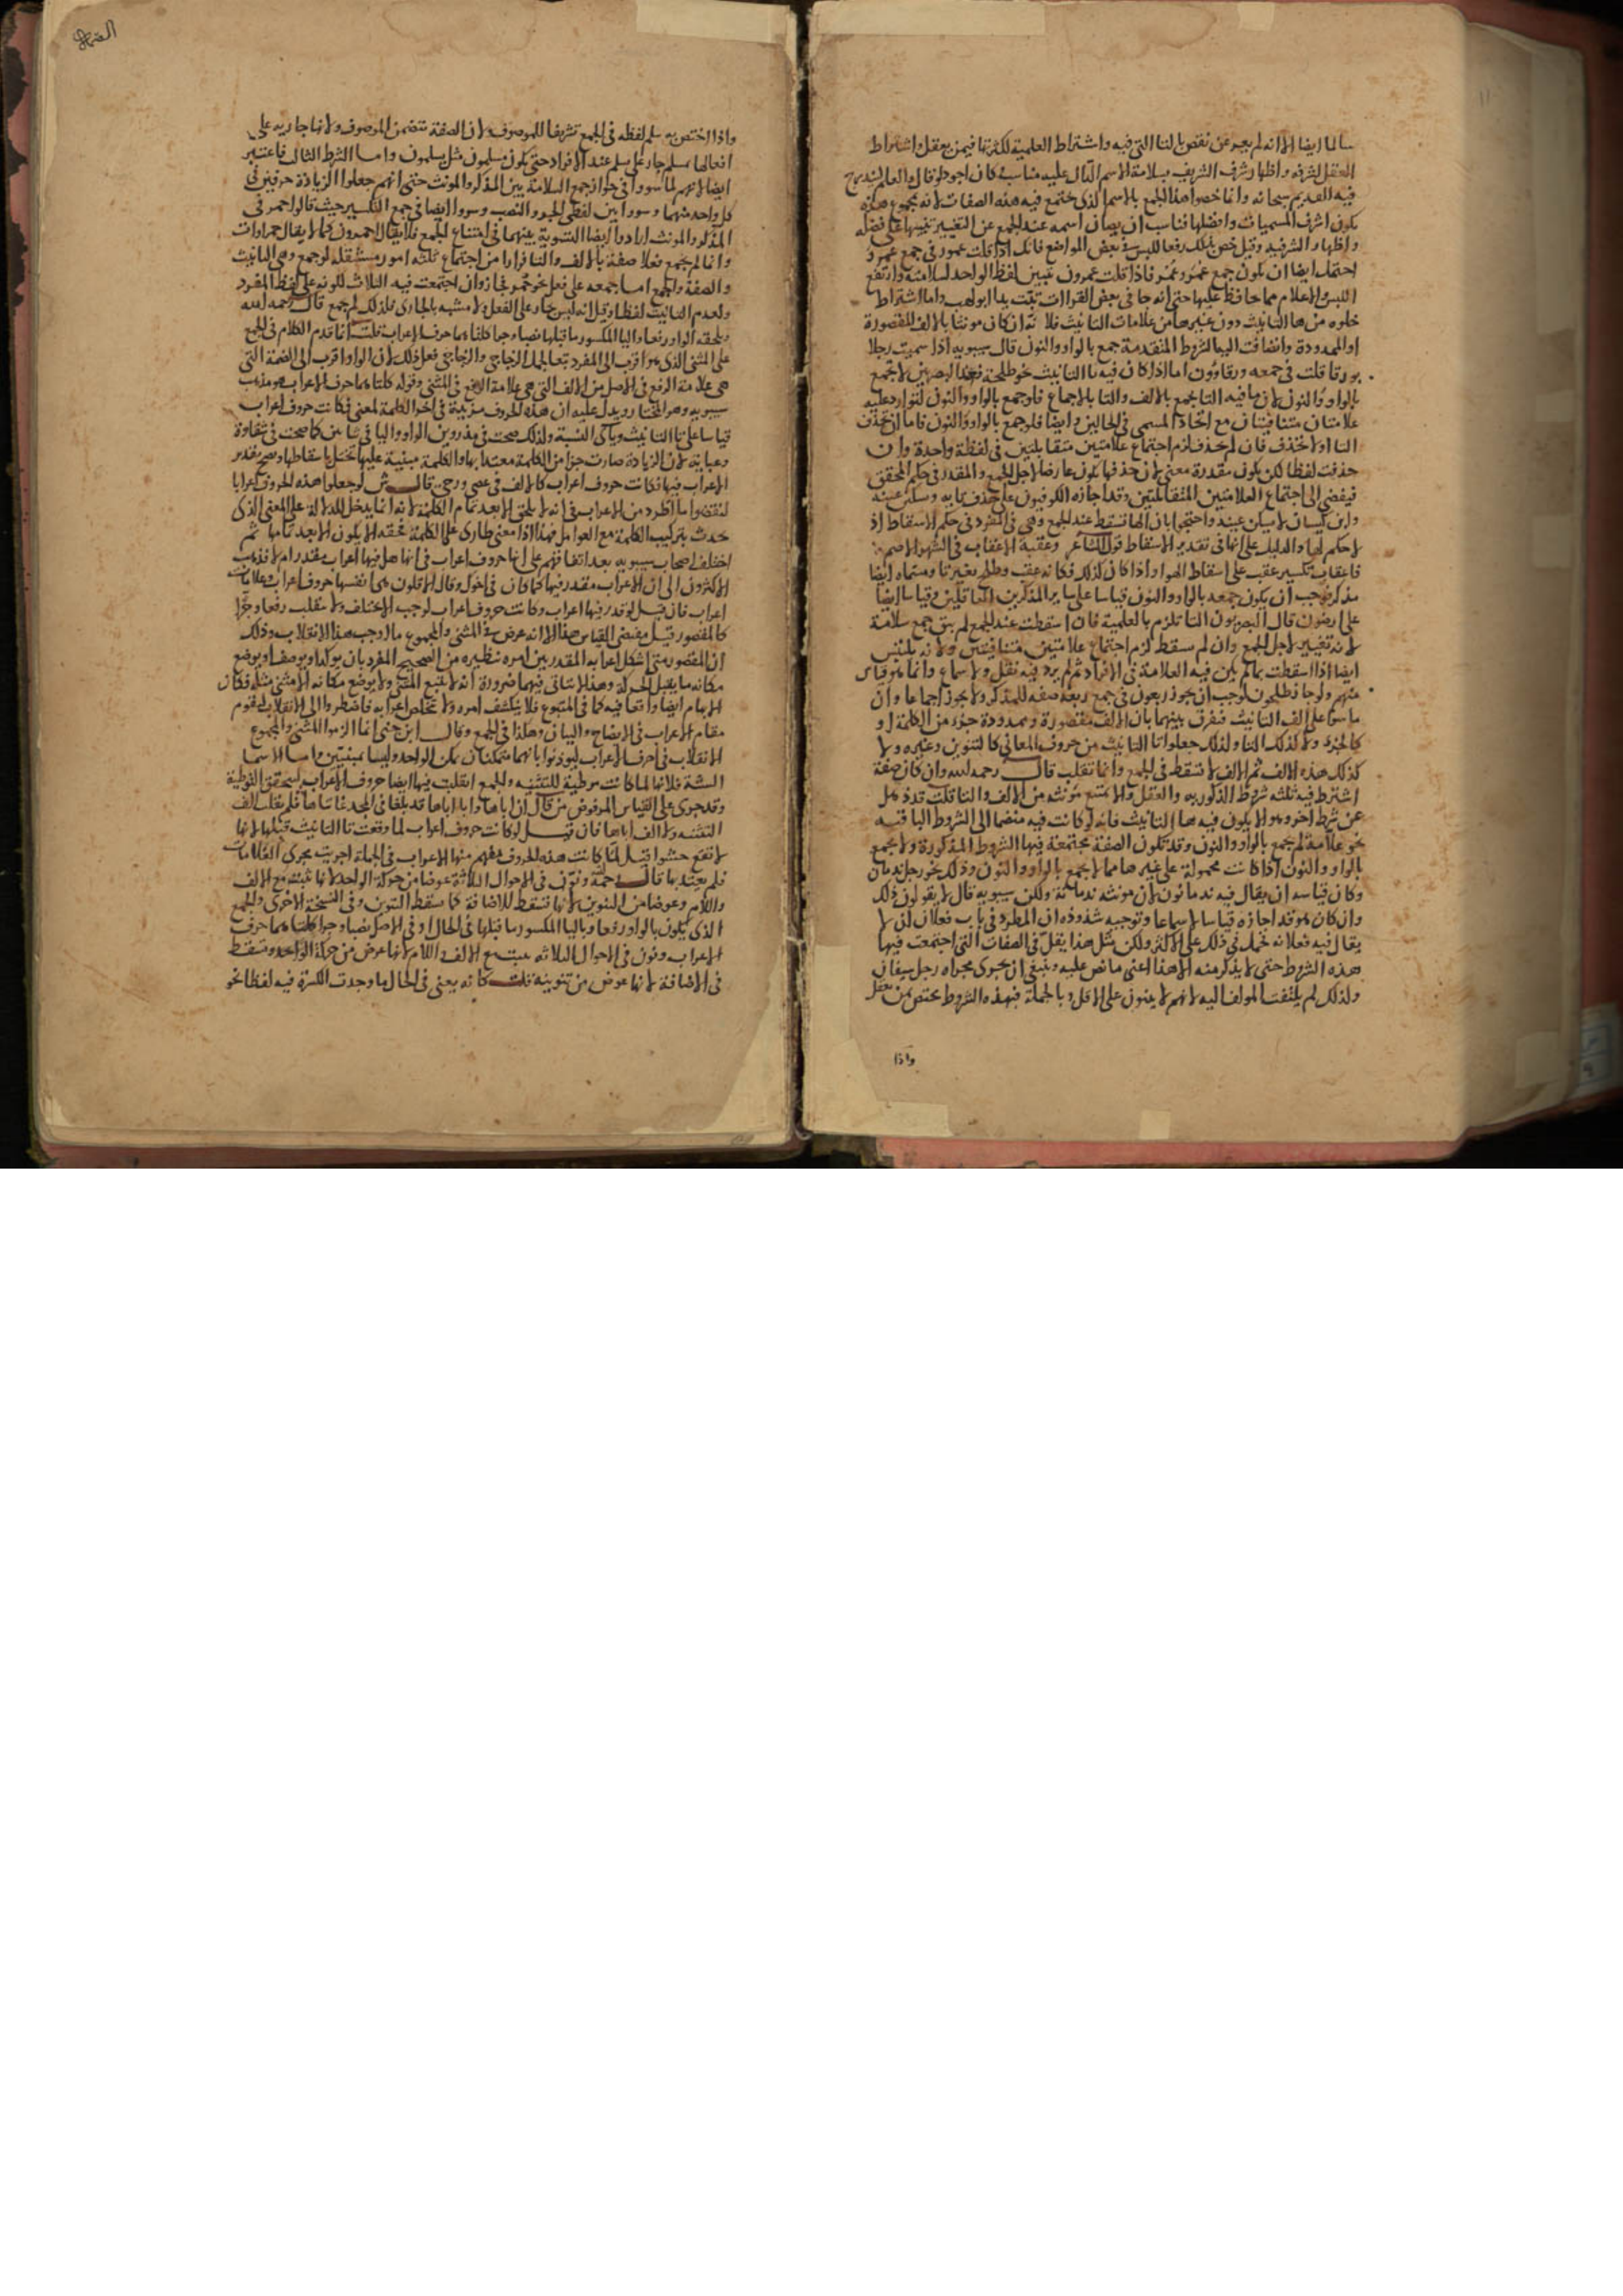 سالما ايضا الا انه لم يعر عن نقص بالتا التى فيه واشتراط العلمية لكثرتها فيمن يعقل واشتراط
العقل لشرفه واظهار شرف الشريف بسلامة الاسم الدال عليه مناسبة كان اجود لو قال والعالم ليندرج
فيه القديم سبحانه وانما خصوا هذا الجمع بالاسم الذى تجتمع فيه هذه الصفات لانه بمجموع هذه
يكون اشرف المسميات وافضلها فناسب ان يصان اسمه عند الجمع عن التغيير تنبيها على فضله
واظهارا لشرفيه وقيل خص بذلك رفعا للبس فى بعض المواضع فانك اذا قلت عمور فى جمع عمرو
احتمل ايضا ان يكون جمع عمر وعمرو فاذا قلت عمرون تبين لفظ الواحد لسلامته وارتفع
اللبس والاعلام مما حافظ عليها حتى انه جا فى بعض القراات تبت يدا ابو لهب واما اشتراط
خلوه من ها التانيث دون غيرها من علامات التانيث فلانه ان كان مونثا بالالف المقصورة
او الممدودة وانضافت اليها الشروط المتقدمة جمع بالواو والنون قال سيبويه اذا سميت رجلا
بورقا قلت فى جمعه ورقاوون اما اذا كان فيه تا التانيث نحو طلحة فعند البصريين لا يجمع
بالواو والنون لان ما فيه التا يجمع بالالف والتا بالاجماع فلو جمع بالواو والنون لتوارد عليه
علامتان متنافيتان مع اتحاد المسمى فى الحالين وايضا فلو جمع بالواو والنون فاما ان تحذف
التا او لا تحذف فان لم تحذف لزم اجتماع علامتين متقابلتين فى لفظة واحدة وان
حذفت لفظا لكن يكون مقدرة معنى لان حذفها يكون عارضا لاجل الجمع والمقدر فى حكم المحقق
فيفضى الى اجتماع العلامتين المتقابلتين وقد اجازه الكوفيون على حذف تايه وسكن عينه
وابن كيسان لا يسكن عينه واحتجوا بان الها تسقط عند الجمع وهى فى المفرد فى حكم الاسقاط اذ
لا حكم لها والدليل على انها فى تقدير الاسقاط قول الشاعر وعقبة الاعقاب فى الشهر الاصم
فاعقاب تكسير عقب على اسقاط الها واذا كان كذلك فكانه عقب وطلح بغير تا ومسماه ايضا
مذكر فوجب ان يكون جمعه بالواو والنون قياسا على ساير المذكرين العاقلين وقياسا ايضا
على ارضون قال البصريون التا تلزم بالعلمية فان اسقطت عند الجمع لم يبق جمع سلامة
لانه تغيير لاجل الجمع وان لم تسقط لزم اجتماع علامتين متنافيتين ولانه يلتبس
ايضا اذا اسقطت بما لم يكن فيه العلامة فى الافراد ثم لم يرد فيه نقل ولا سماع وانما هو قياس
منهم ولو جا طلحون لوجب ان يجوز ربعون فى جمع ربعة صفة للمذكر ولا يجوز اجماعا وان
قاسوا على الف التانيث فنفرق بينهما بان الالف مقصورة وممدودة جزء من الكلمة او
كالجزء ولا كذلك التا ولذلك جعلوا تا التانيث من حروف المعانى كالتنوين وغيره ولا
كذلك هذه الالف ثم الالف لا تسقط فى الجمع وانما تقلب قال رحمه الله وان كان صفة
اشترط فيه ثلثة شروط الذكوريه والعقل والا يمتنع مونثه من الالف والتا قلت قد ذهل
عن شرط اخر وهو الا يكون فيه ها التانيث فانه لو كانت فيه منضما الى الشروط الباقيه
نحو علامة لم يجمع بالواو والنون وقد تكون الصفة مجتمعة فيها الشروط المذكورة ولا يجمع
بالواو والنون اذا كانت محمولة على غيرها مما لا يجمع بالواو والنون وذلك نحو رجل ندمان
وكان قياسه ان يقال فيه ندمانون لان مونثه ندمانة ولكن سيبويه قال لا يقولون ذلك
وان كان هو قد اجازه قياسا لا سماعا وتوجيه شذوذه ان المطرد فى باب فعلان ان لا
يقال فيه فعلانه فحمل فى ذلك على الاكثر ولكن مثل هذا يقل فى الصفات التى اجتمعت فيها
هذه الشروط حتى لا يذكر منه الا هذا اعنى ما نص عليه وينبغى ان يجرى مجراه رجل سيفان
ولذلك لم يلتفت المولف اليه لانهم لا يبنون على الاقل وبالجملة فبهذه الشروط يختص بمن يعقل
واذا
واذا اختص به سلم لفظه فى الجمع تشريفا للموصوف لان الصفة تتضمن الموصوف ولانها جاريه على
افعالها فمسلم جار على يسلم عند الافراد حتى يكون مسلمون مثل يسلمون واما الشرط الثالث فاعتبر
ايضا لانهم لما سووا فى جواز جمع السلامة بين المذكر والمونث حتى انهم جعلوا الزيادة حرفين فى
كل واحد منهما وسووا بين لفظى الجر والنصب وسووا ايضا فى جمع التكسير حيث قالوا حمر فى
المذكر والمونث ارادوا ايضا التسوية بينهما فى امتناع الجمع فلا يقال احمرون كما لا يقال حمراوات
وانما لم يجمع فعلا صفة بالالف والتا فرارا من اجتماع ثلثه امور مستثقله لو جمع وهى التانيث
والصفة والجمع اما جمعه على فعل نحو حمر فجاز وان اجتمعت فيه الثلاث لكونه على لفظ المفرد
ولعدم التانيث لفظا وقيل انه ليس جار على الفعل ولا مشبه بالجارى فلذلك لم يجمع قال رحمه الله
ويلحقه الواو رفعا واليا المكسور ما قبلها نصبا وجرا كلتاهما حرف الاعراب قلت انما قدم الكلام فى الجمع
على المثنى الذى هو اقرب الى المفرد تبعا لجمل الزجاجى والزجاجى فعل ذلك لان الواو اقرب الى الضمة التى
هى علامة الرفع فى الاصل من الالف التى هى علامة الرفع فى المثنى وقوله كلتاهما حرف الاعراب هو مذهب
سيبويه وهو المختار ويدل عليه ان هذه الحروف مزيدة فى اخر الكلمة لمعنى فكانت حروف اعراب
قياسا على تا التانيث وياى النسبة ولذلك صحت فى مذروين الواو واليا فى ثنايين كما صحت فى شقاوة
وعباية لان الزيادة صارت جزا من الكلمة معتدا بها والكلمة مبنية عليها تختل باسقاطها وصح تقدير
الاعراب فيها فكانت حروف اعراب كالالف فى عصى ورحى قال ش لو جعلوا هذه الحروف اعرابا
لنقضوا ما اطرد من الاعراب فى انه لا يلحق الا بعد تمام الكلمة لانه انما يدخل للدلالة على المعنى الذى
حدث بتركيب الكلمة مع العوامل فهذا اذا معنى طارى على الكلمة فحقه الا يكون الا بعد تمامها ثم
اختلف اصحاب سيبويه بعد اتفاقهم على انها حروف اعراب فى انها هل فيها اعراب مقدر ام لا فذهب
الاكثرون الى ان الاعراب مقدر فيها كما كان فى احوك وقال الاقلون هى انفسها حروف اعراب وعلامات
اعراب فان قيل لو قدر فيها اعراب وكانت حروف اعراب لوجب الا تختلف ولا تنقلب رفعا وجرا
كالمقصور قيل مقتضى القياس هذا الا انه عرض فى المثنى والمجموع ما اوجب هذا الانقلاب وذلك
ان المقصور متى اشكل اعرابه المقدر بين امره نظيره من الصحيح المفرد بان يوكد او يوصف او يوضع
مكانه ما يقبل الحركة وهذا لا يتاتى فيهما ضرورة انه لا يتبع المثنى ولا يوضع مكانه الا مثنى مثله فكان
الابهام ايضا واقعا فيه كما فى المتبوع فلا ينكشف امره ولا يتخلص اعرابه فاضطروا الى الانقلاب ليقوم
مقام الاعراب فى الايضاح والبيان وهكذا فى الجمع وقال ابن جنى انما الزموا المثنى والمجموع
الانقلاب فى احرف الاعراب ليوذنوا بانهما متمكنان تمكن الواحد وليسا بمبنيين واما الاسما
الستة فلانها لما كانت موطية للتثنيه والجمع انقلبت فيها ايضا حروف الاعراب لتحقق التوطية
وقد جرى على القياس المرفوض من قال ان اباها وابا اباها قد بلغا فى المجد غايتاها فلم يقلب الف
التثنيه ولا الف اباها فان قيل لو كانت حروف اعراب لما وقعت تا التانيث قبلها لانها
لا تقع حشوا قيل لما كانت هذه الحروف يفهم منها الاعراب فى الجملة اجريت مجرى العلامات
فلم يعتد بها قال رحمه ونون فى الاحوال الثلاثة عوضا من حركة الواحد لانها تثبت مع الالف
واللام وعوضا من التنوين لانها تسقط للاضافة كما سقط التنوين وفى النسخة الاخرى والجمع
الذى يكون بالواو رفعا وباليا المكسور ما قبلها فى الحال او فى الاصل نصبا وجرا كلتاهما حرف
الاعراب ونون فى الاحوال الثلاثه تثبت مع الالف واللام لانها عوض من حركة الواحد وتسقط
فى الاضافة لانها عوض من تنوينه قلت كانه يعنى فى الحال ما وجدت الكسرة فيه لفظا نحو